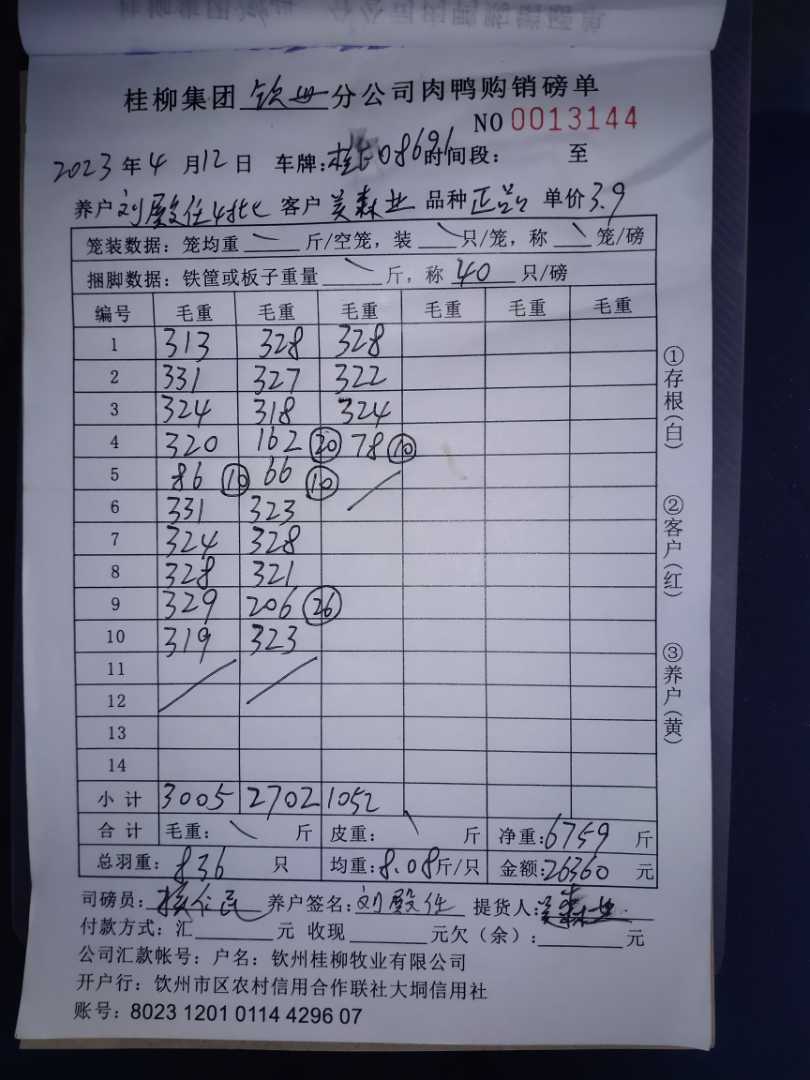 桂柳集团 钦州 分公司肉鸭购销磅单
NO 0013144
2023 年 4 月 12 日 车牌: 桂 08691 时间段: 至
养户 刘殿任 4批 客户 美森业 品种 正品 单价 3.9
笼装数据: 笼均重 \ 斤/空笼, 装 \ 只/笼, 称 \ 笼/磅
捆脚数据: 铁筐或板子重量 \ 斤, 称 40 只/磅
编号 毛重 毛重 毛重 毛重 毛重 毛重
1 313 328 328
2 331 327 322
3 324 318 324
4 320 162 (20) 78 (10)
5 86 (10) 66 (10)
6 331 323
7 324 328
8 328 321
9 329 206 (26)
10 319 323
11
12
13
14
小计 3005 2702 1052
合计 毛重: \ 斤 皮重: \ 斤 净重: 6759 斤
总羽重: 836 只 均重: 8.08 斤/只 金额: 26360 元
司磅员: 养户签名: 刘殿任 提货人: 美森业
付款方式: 汇 元 收现 元欠(余): 元
公司汇款帐号: 户名: 钦州桂柳牧业有限公司
开户行: 钦州市区农村信用合作联社大垌信用社
账号: 8023 1201 0114 4296 07
①存根(白)
②客户(红)
③养户(黄)